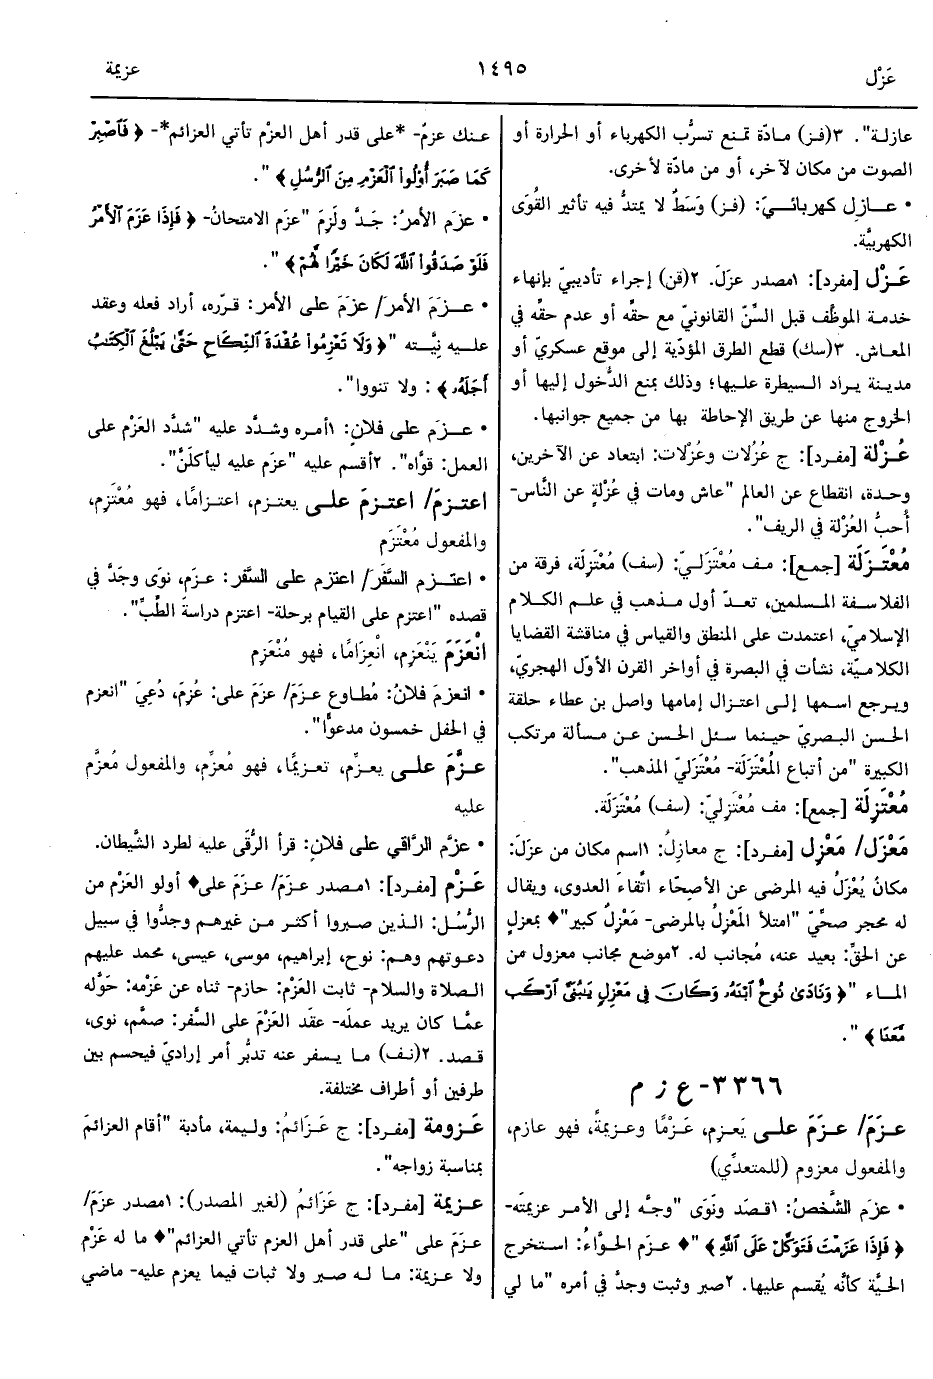 عَزْل
١٤٩٥
عزيمة
عازلة". ٣(فز) مادّة تمنع تسرُّب الكهرباء أو الحرارة أو
الصوت من مكان لآخر، أو من مادّة لأخرى.
• عـازل كهربائـيّ: (فز) وَسَطٌ لا يمتدُّ فيه تأثير القُوَى
الكهربيَّة.
عَزْل [مفرد]: ١مصدر عزَلَ. ٢(قن) إجراء تأديبيّ بإنهاء
خدمة الموظَّف قبل السِّنّ القانونيّ مع حقِّه أو عدم حقِّه في
المعاش. ٣(سك) قطع الطرق المؤدّية إلى موقع عسكريّ أو
مدينة يراد السيطرة عليها؛ وذلك بمنع الدُّخول إليها أو
الخروج منها عن طريق الإحاطة بها من جميع جوانبها.
عُزْلة [مفرد]: ج عُزُلات وعُزْلات: ابتعاد عن الآخرين،
وحدة، انقطاع عن العالم "عاش ومات في عُزْلةٍ عن النَّاس-
أُحبُّ العُزْلة في الريف".
مُعْتَزَلَة [جمع]: مف مُعْتَزَليّ: (سف) مُعْتَزِلَة، فرقة من
الفلاسفة المسلمين، تعدّ أول مذهب في علم الكلام
الإسلاميّ، اعتمدت على المنطق والقياس في مناقشة القضايا
الكلاميّة، نشأت في البصرة في أواخر القرن الأوّل الهجريّ،
ويرجع اسمها إلى اعتزال إمامها واصل بن عطاء حلقة
الحسن البصريّ حينما سئل الحسن عن مسألة مرتكب
الكبيرة "من أتباع المُعْتَزَلَة- مُعْتَزَليّ المذهب".
مُعْتَزِلَة [جمع]: مف مُعْتَزِليّ: (سف) مُعْتَزَلَة.
مَعْزَل/ مَعْزِل [مفرد]: ج معازِلُ: ١اسم مكان من عزَلَ:
مكانٌ يُعْزَلُ فيه المرضى عن الأصِحَّاء اتِّقاءَ العدوى، ويقال
له محجر صحِّيّ "امتلأ المَعْزِلُ بالمرضى- مَعْزِلٌ كبير"♦ بمعزلٍ
عن الحقِّ: بعيد عنه، مُجانب له. ٢موضع مجانب معزول من
الماء "﴿ وَنَادَىٰ نُوحٌ ٱبْنَهُۥ وَكَانَ فِي مَعْزِلٍ يَٰبُنَيَّ ٱرْكَب
مَّعَنَا ﴾".
٣٣٦٦- ع ز م
عَزَمَ/ عزَمَ على يَعزِم، عَزْمًا وعزيمةً، فهو عازم،
والمفعول معزوم (للمتعدِّي)
• عزَم الشَّخصُ: ١قصَد ونَوَى "وجَّه إلى الأمر عزيمتَه-
﴿ فَإِذَا عَزَمْتَ فَتَوَكَّلْ عَلَى ٱللَّهِ ﴾"♦ عزم الحوَّاءُ: استخرج
الحيَّة كأنَّه يُقسم عليها. ٢صبر وثبت وجدَّ في أمره "ما لي
عنك عزمٌ- *على قدر أهل العزْم تأتي العزائم*- ﴿ فَٱصْبِرْ
كَمَا صَبَرَ أُوْلُواْ ٱلْعَزْمِ مِنَ ٱلرُّسُلِ ﴾".
• عزَم الأمرُ: جَدَّ ولَزِمَ "عزَم الامتحانُ- ﴿ فَإِذَا عَزَمَ ٱلْأَمْرُ
فَلَوْ صَدَقُواْ ٱللَّهَ لَكَانَ خَيْرًا لَّهُمْ ﴾".
• عزَمَ الأمرَ/ عزَمَ على الأمر: قرّره، أراد فعله وعقد
عليه نيَّته "﴿ وَلَا تَعْزِمُواْ عُقْدَةَ ٱلنِّكَاحِ حَتَّىٰ يَبْلُغَ ٱلْكِتَٰبُ
أَجَلَهُۥ ﴾: ولا تنووا".
• عـزَم على فلانٍ: ١أمره وشدَّد عليه "شدَّد العَزْم على
العمل: قوَّاه". ٢أقسم عليه "عزَم عليه ليأكلَنَّ".
اعتـزمَ/ اعتـزمَ علـى يعتـزم، اعتـزامًا، فهو مُعْتَزِم،
والمفعول مُعْتَزَم
• اعتـزم السَّفَرَ/ اعتزم على السَّفَر: عزَم، نوَى وجَدَّ في
قصده "اعتزم على القيام برحلة- اعتزم دراسةَ الطِّبِّ".
انْعَزَمَ يَنْعَزِم، انْعِزامًا، فهو مُنْعَزِم
• انعزمَ فلانٌ: مُطاوع عزَمَ/ عزَمَ على: عُزِمَ، دُعِيَ "انعزم
في الحفل خمسون مدعوًّا".
عزَّمَ على يعزِّم، تعزيمًا، فهو مُعزِّم، والمفعول مُعزَّم
عليه
• عزَّم الرَّاقي على فلانٍ: قرأ الرُّقَى عليه لطرد الشَّيطان.
عَزْم [مفرد]: ١مصدر عزَمَ/ عزَمَ على♦ أولو العَزْم من
الرُّسُل: الذين صبروا أكثر من غيرهم وجدُّوا في سبيل
دعوتهم وهم: نوح، إبراهيم، موسى، عيسى، محمد عليهم
الصلاة والسلام- ثابت العَزْم: حازم- ثناه عن عَزْمه: حَوَّله
عمَّا كان يريد عملَه- عقَد العَزْمَ على السَّفر: صمَّم، نوى،
قصد. ٢(نف) ما يسفر عنه تدبُّر أمر إراديّ فيحسم بين
طرفين أو أطراف مختلفة.
عَزومة [مفرد]: ج عَزَائمُ: وليمة، مأدبة "أقام العزائمَ
بمناسبة زواجه".
عزيمة [مفرد]: ج عَزَائمُ (لغير المصدر): ١مصدر عزَمَ/
عزَمَ على "على قدر أهل العزم تأتي العزائم"♦ ما له عَزْم
ولا عزيمة: ما له صبر ولا ثبات فيما يعزم عليه- ماضي